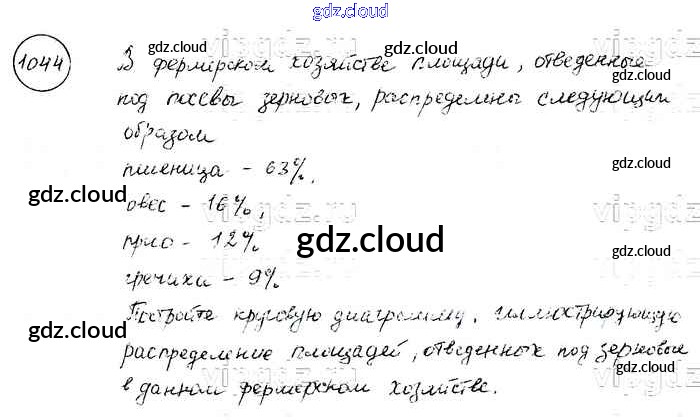 gdz.cloud
1044
В фермерском хозяйстве площади, отведенные
под посевы зерновых, распределены следующим
образом
пшеница - 63%,
овес - 16%,
просо - 12%
гречиха - 9%
Постройте круговую диаграмму, иллюстрирующую
распределение площадей, отведенных под зерновые
в данном фермерском хозяйстве.
gdz.cloud
gdz.cloud
gdz.cloud
gdz.cloud
gdz.cloud
gdz.cloud
gdz.cloud
gdz.cloud
gdz.cloud
gdz.cloud
vipgdz.ru
vipgdz.ru